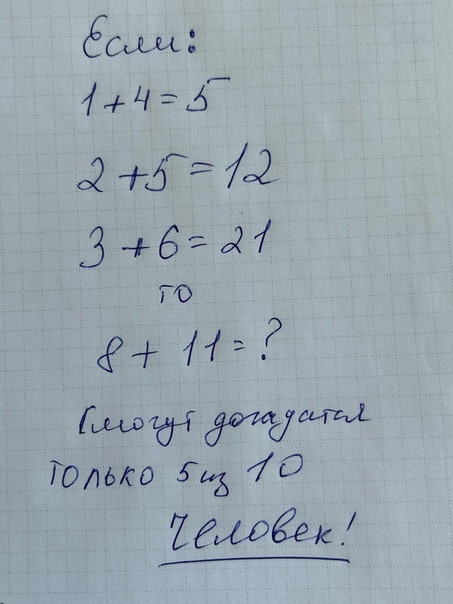 Если:
1+4=5
2+5=12
3+6=21
то
8+11=?
Смогут догадатся
только 5 из 10
Человек!